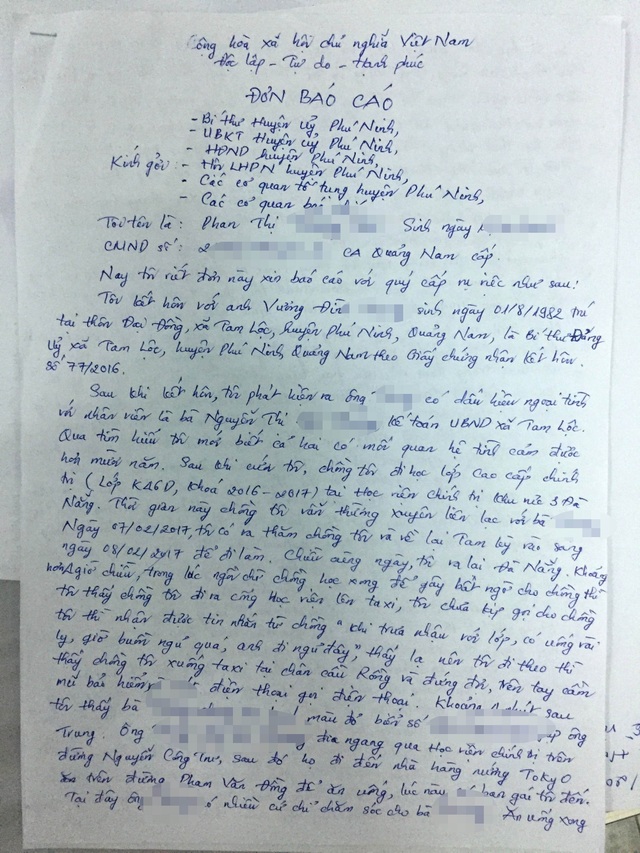 Cộng hòa xã hội chủ nghĩa Việt Nam
Độc lập - Tự do - Hạnh phúc
ĐƠN BÁO CÁO
- Bí thư Huyện uỷ Phú Ninh,
- UBKT Huyện uỷ Phú Ninh,
- HĐND huyện Phú Ninh,
Kính gởi: - Hội LHPN huyện Phú Ninh,
- Các cơ quan tố tụng huyện Phú Ninh,
- Các cơ quan báo
Tôi tên là: Phan Thị Sinh ngày
CMND số: 2 CA Quảng Nam cấp.
Nay tôi viết đơn này xin báo cáo với quý cấp vụ việc như sau:
Tôi kết hôn với anh Vương Đình sinh ngày 01/8/1982 trú
tại thôn Đại Đồng, xã Tam Lộc, huyện Phú Ninh, Quảng Nam, là Bí thư Đảng
uỷ xã Tam Lộc, huyện Phú Ninh Quảng Nam theo Giấy chứng nhận kết hôn
số 77/2016.
Sau khi kết hôn, tôi phát hiện ra ông có dấu hiệu ngoại tình
với nhân viên là bà Nguyễn Thị kế toán UBND xã Tam Lộc.
Qua tìm hiểu tôi mới biết cả hai có mối quan hệ tình cảm được
hơn mười năm. Sau khi cưới tôi, chồng tôi đi học lớp cao cấp chính
trị (Lớp K46D, Khoá 2016-2017) tại Học viện chính trị khu vực 3 Đà
Nẵng. Thời gian này chồng tôi vẫn thường xuyên liên lạc với bà
Ngày 07/02/2017, tôi có ra thăm chồng tôi và về lại Tam Kỳ vào sáng
ngày 08/02/2017 để đi làm. Chiều cùng ngày, tôi ra lại Đà Nẵng. Khoảng
hơn 4 giờ chiều, trong lúc ngồi chờ chồng học xong để gây bất ngờ cho chồng thì
tôi thấy chồng tôi đi ra cổng Học viện lên taxi, tôi chưa kịp gọi cho chồng
tôi thì nhận được tin nhắn từ chồng "khi trưa nhậu với lớp, có uống vài
ly, giờ buồn ngủ quá, anh đi ngủ đây", thấy lạ nên tôi đi theo thì
thấy chồng tôi xuống taxi tại chân cầu Rồng và đứng đó, trên tay cầm
mũ bảo hiểm điện thoại gọi điện thoại. Khoảng phút sau
tôi thấy bà màu đỏ biển số ông
Trung. Ông đưa ngang qua Học viện chính trị trên
đường Nguyễn Công Trứ, sau đó họ đi đến nhà hàng nướng TOKYO
trên đường Phạm Văn Đồng để ăn uống, lúc này có bạn gái tôi đến.
Tại đây ông có nhiều cử chỉ chăm sóc cho bà Ăn uống xong